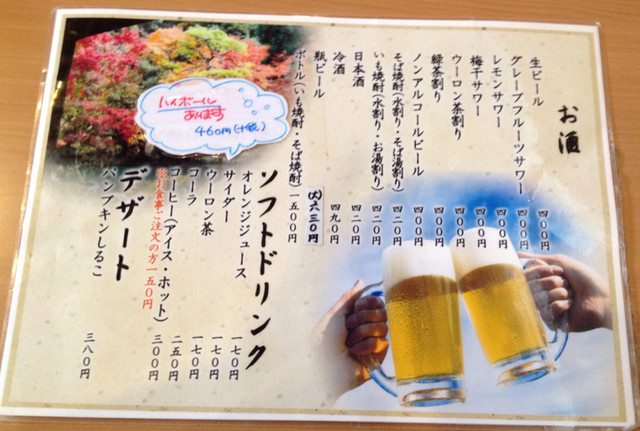 お酒
生ビール 四〇〇円
グレープフルーツサワー 四〇〇円
レモンサワー 四〇〇円
梅干サワー 四〇〇円
ウーロン茶割り 四〇〇円
緑茶割り 四〇〇円
ノンアルコールビール 四〇〇円
そば焼酎(水割り・そば湯割り) 四二〇円
いも焼酎(水割り・お湯割り) 四二〇円
日本酒 四二〇円
冷酒 四九〇円
瓶ビール (大)六三〇円
ボトル(いも焼酎・そば焼酎) 一五〇〇円
ハイボール
あります
460円(+税)
ソフトドリンク
オレンジジュース 一七〇円
サイダー 一七〇円
ウーロン茶 一七〇円
コーラ 二五〇円
コーヒー(アイス・ホット) 三〇〇円
※お食事ご注文の方一五〇円
デザート
パンプキンしるこ 三八〇円